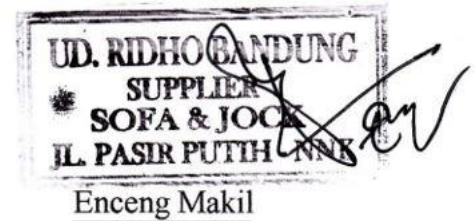 UD. RIDHO BANDUNG
SUPPLIER
SOFA & JOCK
JL. PASIR PUTIH NNK
Enceng Makil